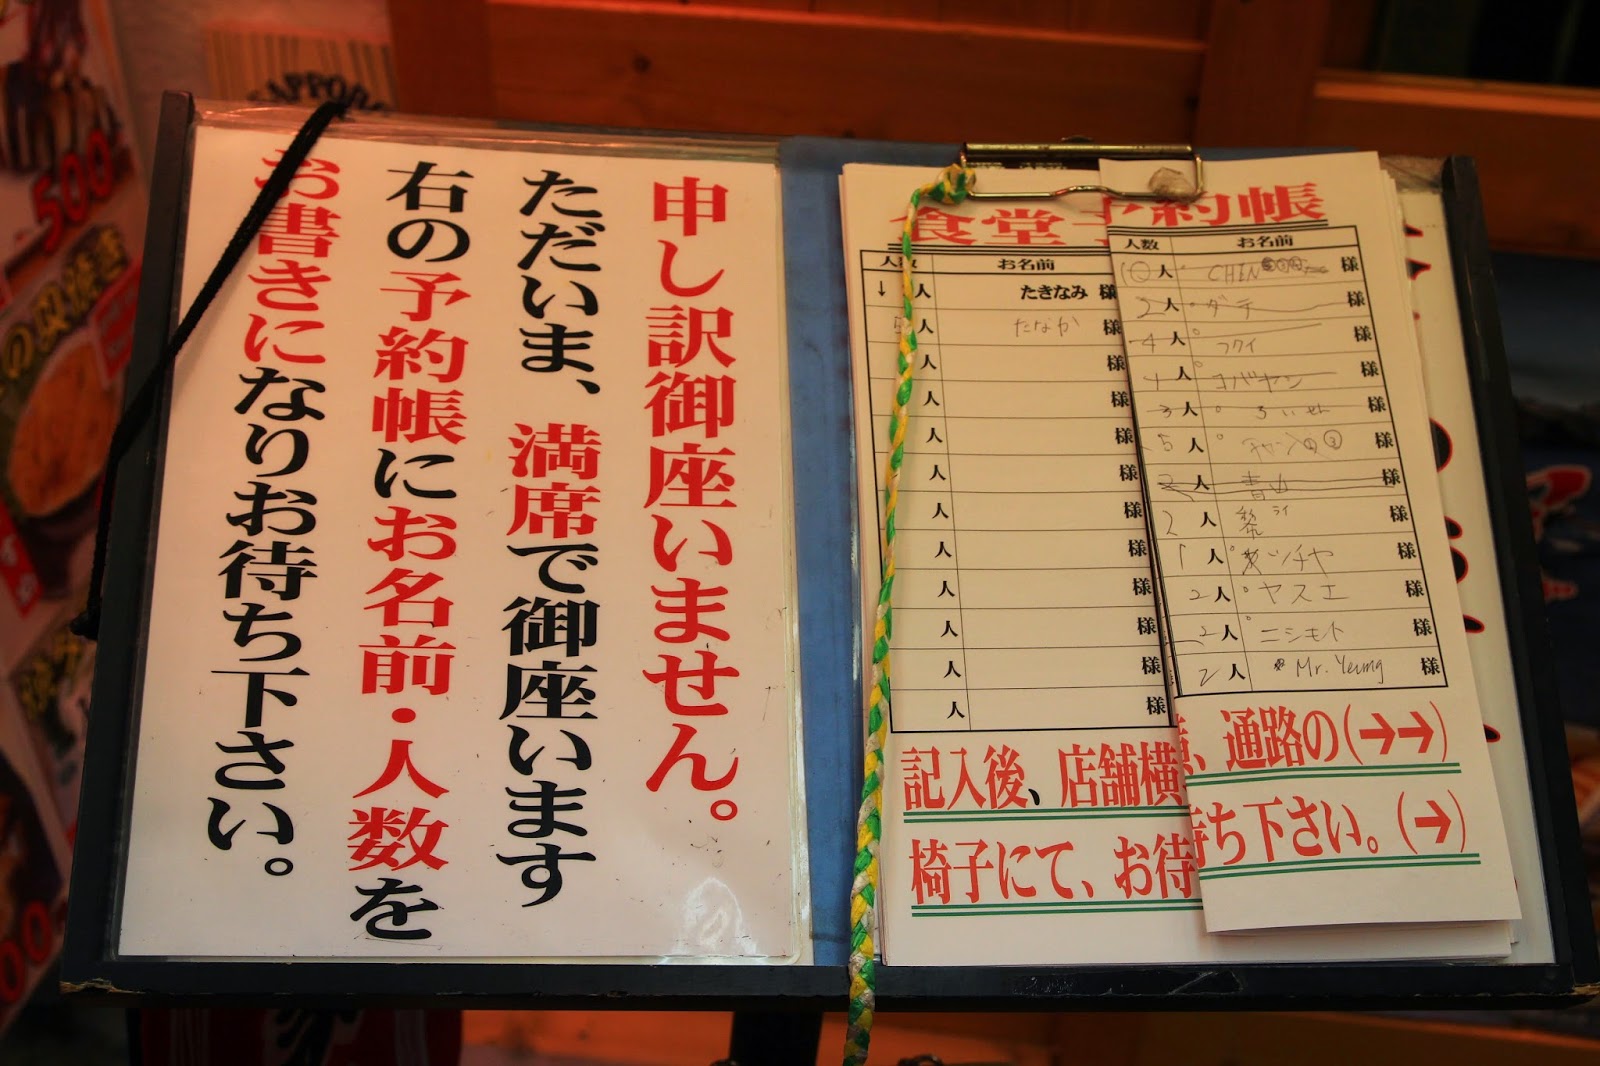 SAPPORO
500
申し訳御座いません。
ただいま、満席で御座います
右の予約帳にお名前・人数を
お書きになりお待ち下さい。
食堂予約帳
人数 お名前
↓ 人 たきなみ 様
人 たなか 様
人 様
人 様
人 様
人 様
人 様
人 様
人 様
人 様
人 様
人 様
人 様
人数 お名前
人 CHIN 様
2人 ダテ 様
4人 フクイ 様
4人 コバヤシ 様
3人 ろいせん 様
5人 様
人 青山 様
2人 黎 ライ 様
1人 ツチヤ 様
2人 ヤスエ 様
2人 ニシモト 様
2人 Mr. Yeung 様
記入後、店舗横、通路の(→→)
椅子にて、お待ち下さい。(→)